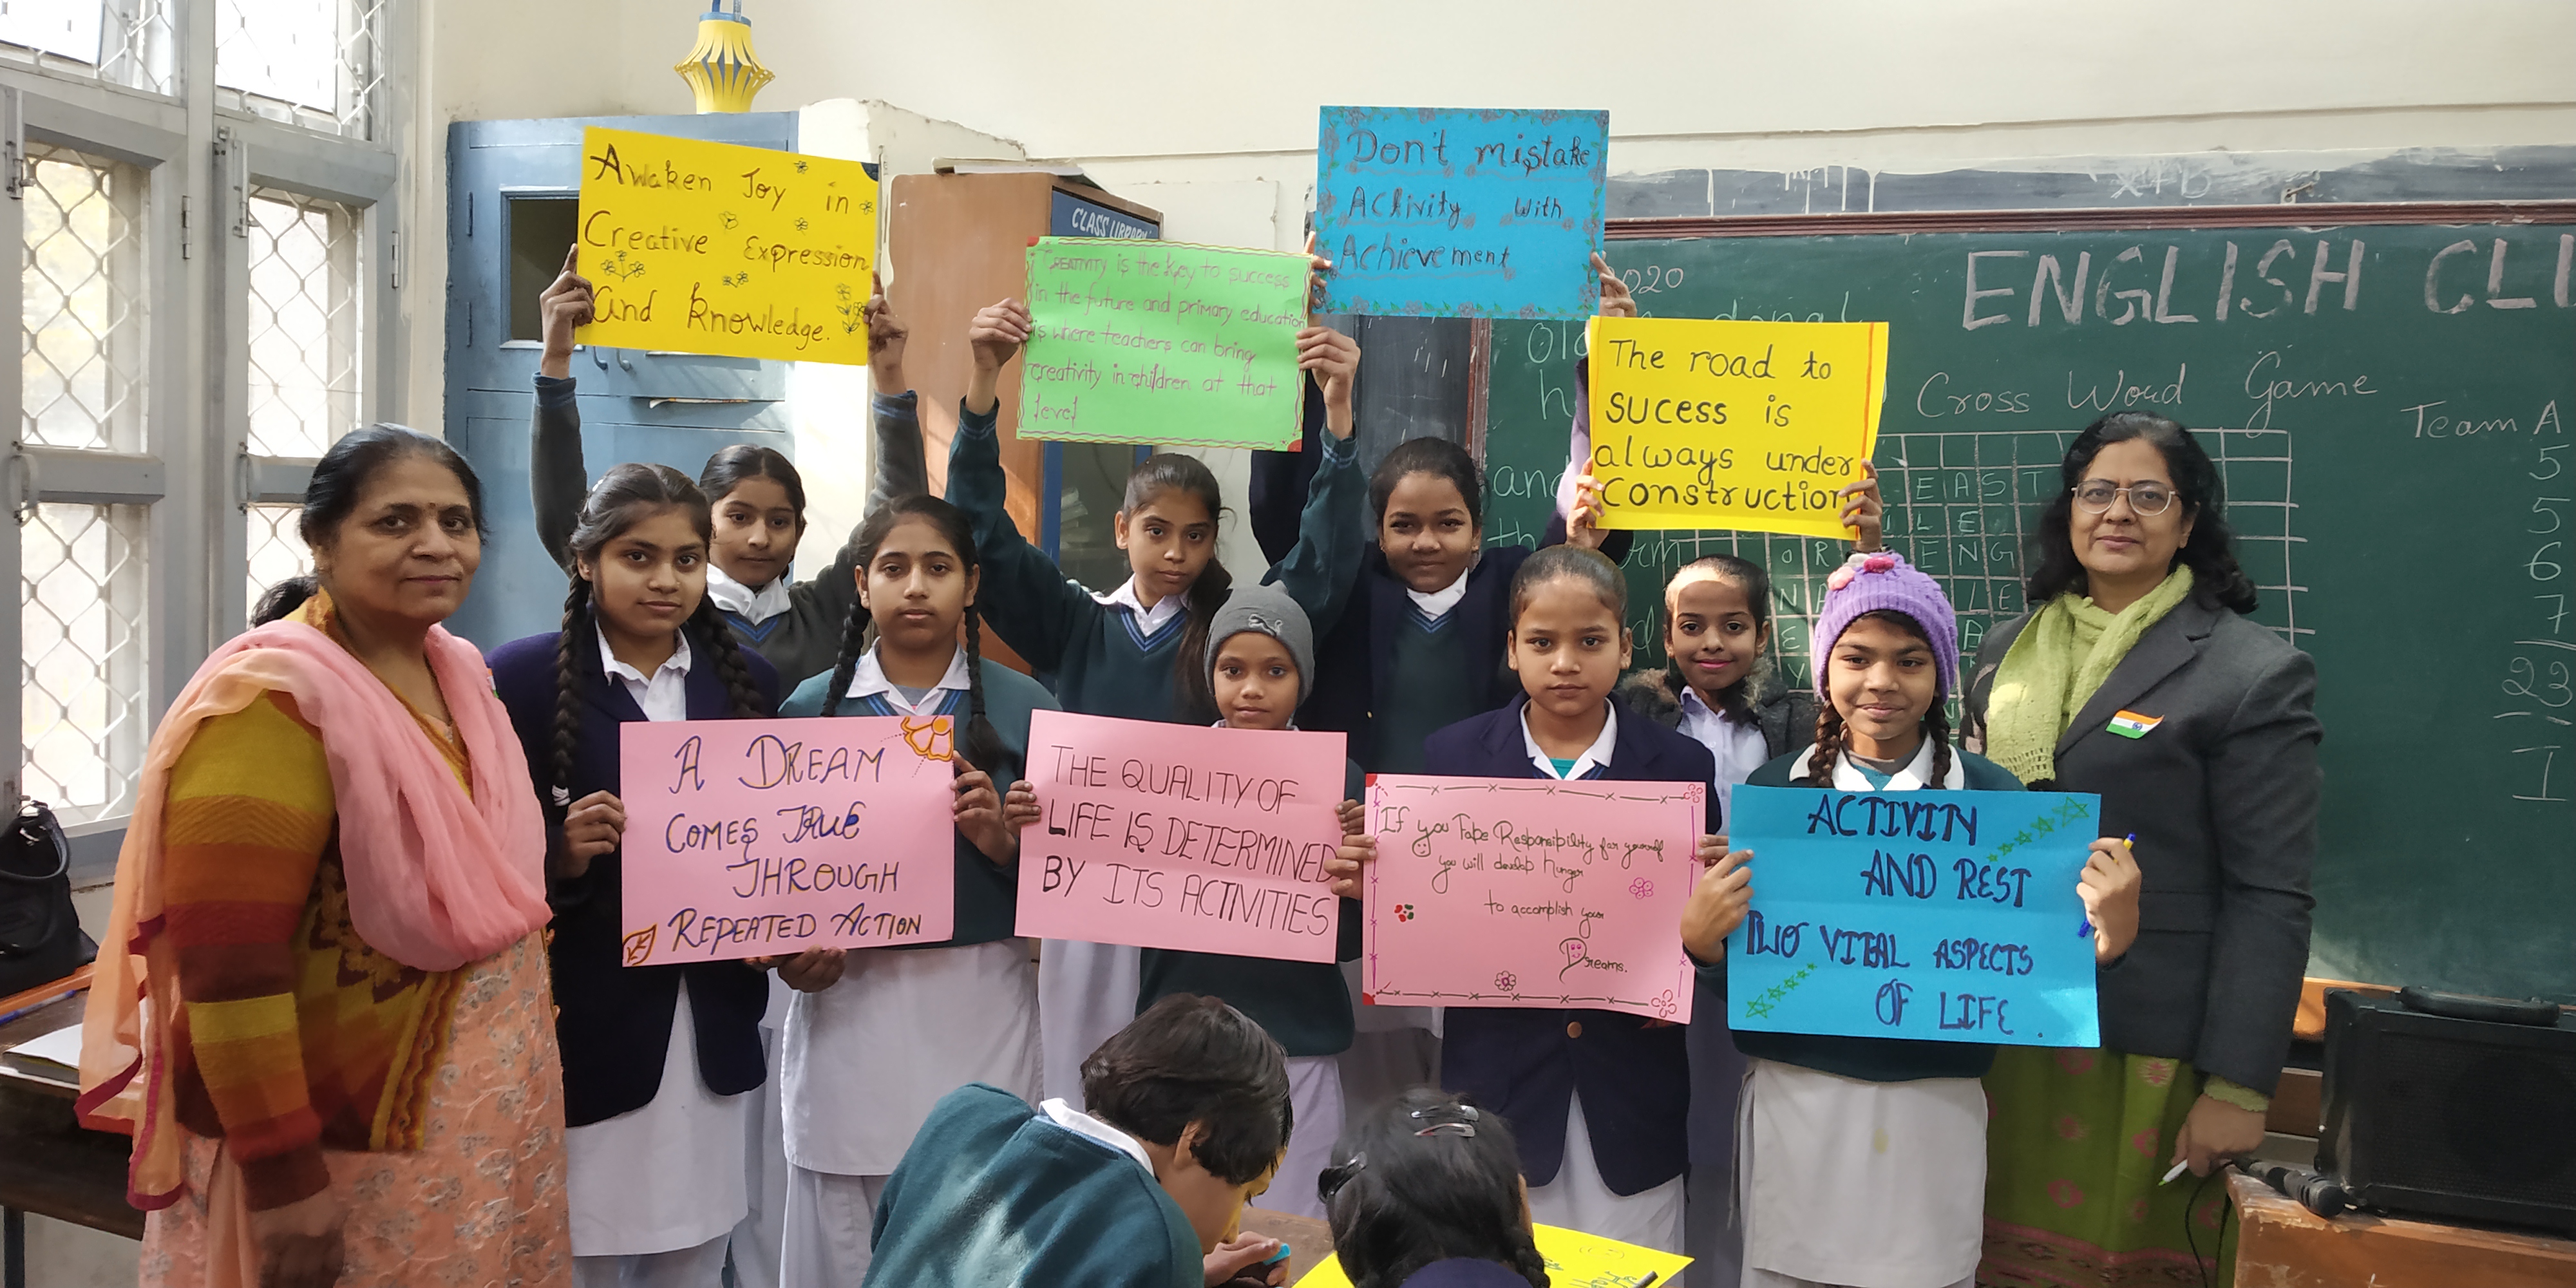 Awaken Joy in
Creative Expression
and Knowledge.
CLASS LIBRARY
CREATIVITY is the key to success
in the future and primary education
is where teachers can bring
creativity in children at that
level
Don't mistake
Activity with
Achievement
The road to
sucess is
always under
Construction
2020
ENGLISH CLU
Cross Word Game
Team A
5
5
6
7
EAST
ENG
and
A DREAM
COMES TRUE
THROUGH
REPEATED ACTION
THE QUALITY OF
LIFE IS DETERMINED
BY ITS ACTIVITIES
If you Take Responsibility for yourself
you will develop hunger
to accomplish your
Dreams.
ACTIVITY
AND REST
TWO VITAL ASPECTS
OF LIFE.